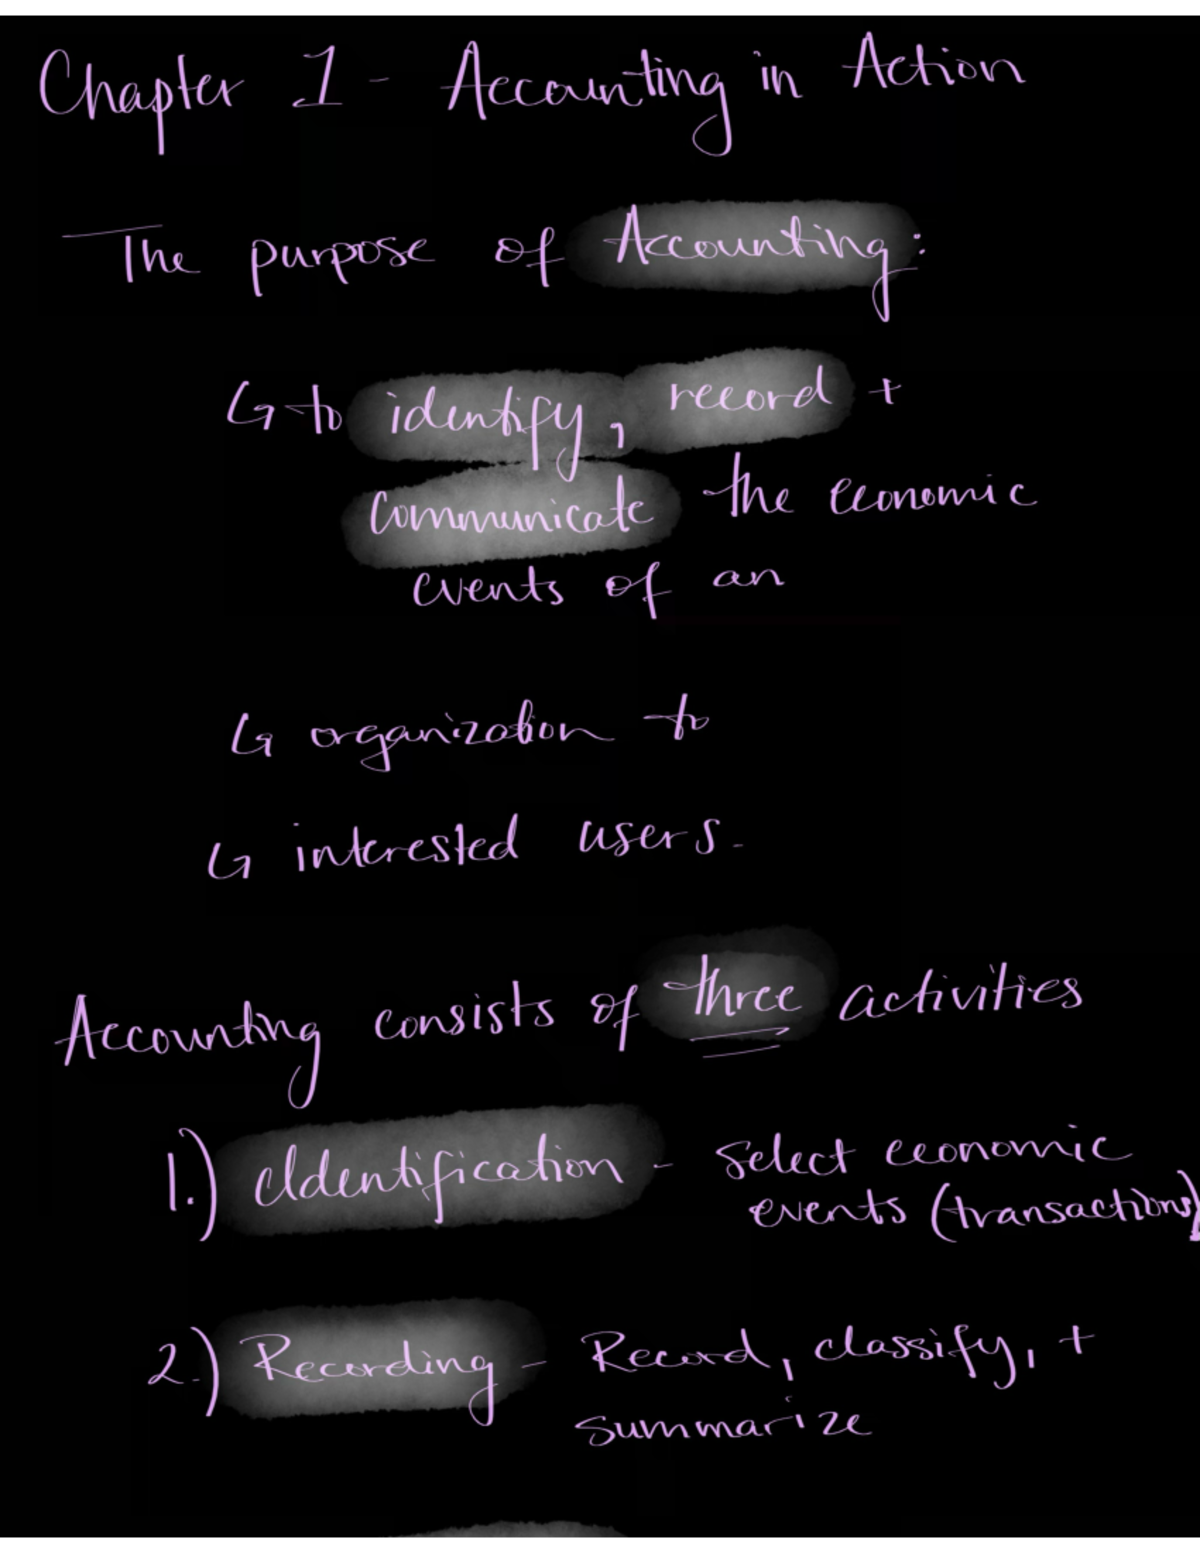 Chapter 1 - Accounting in Action
The purpose of Accounting:
↳ to identify, record +
communicate the economic
events of an
↳ organization to
↳ interested users.
Accounting consists of three activities
1.) Identification - select economic
events (transactions)
2.) Recording - Record, classify, +
summarize